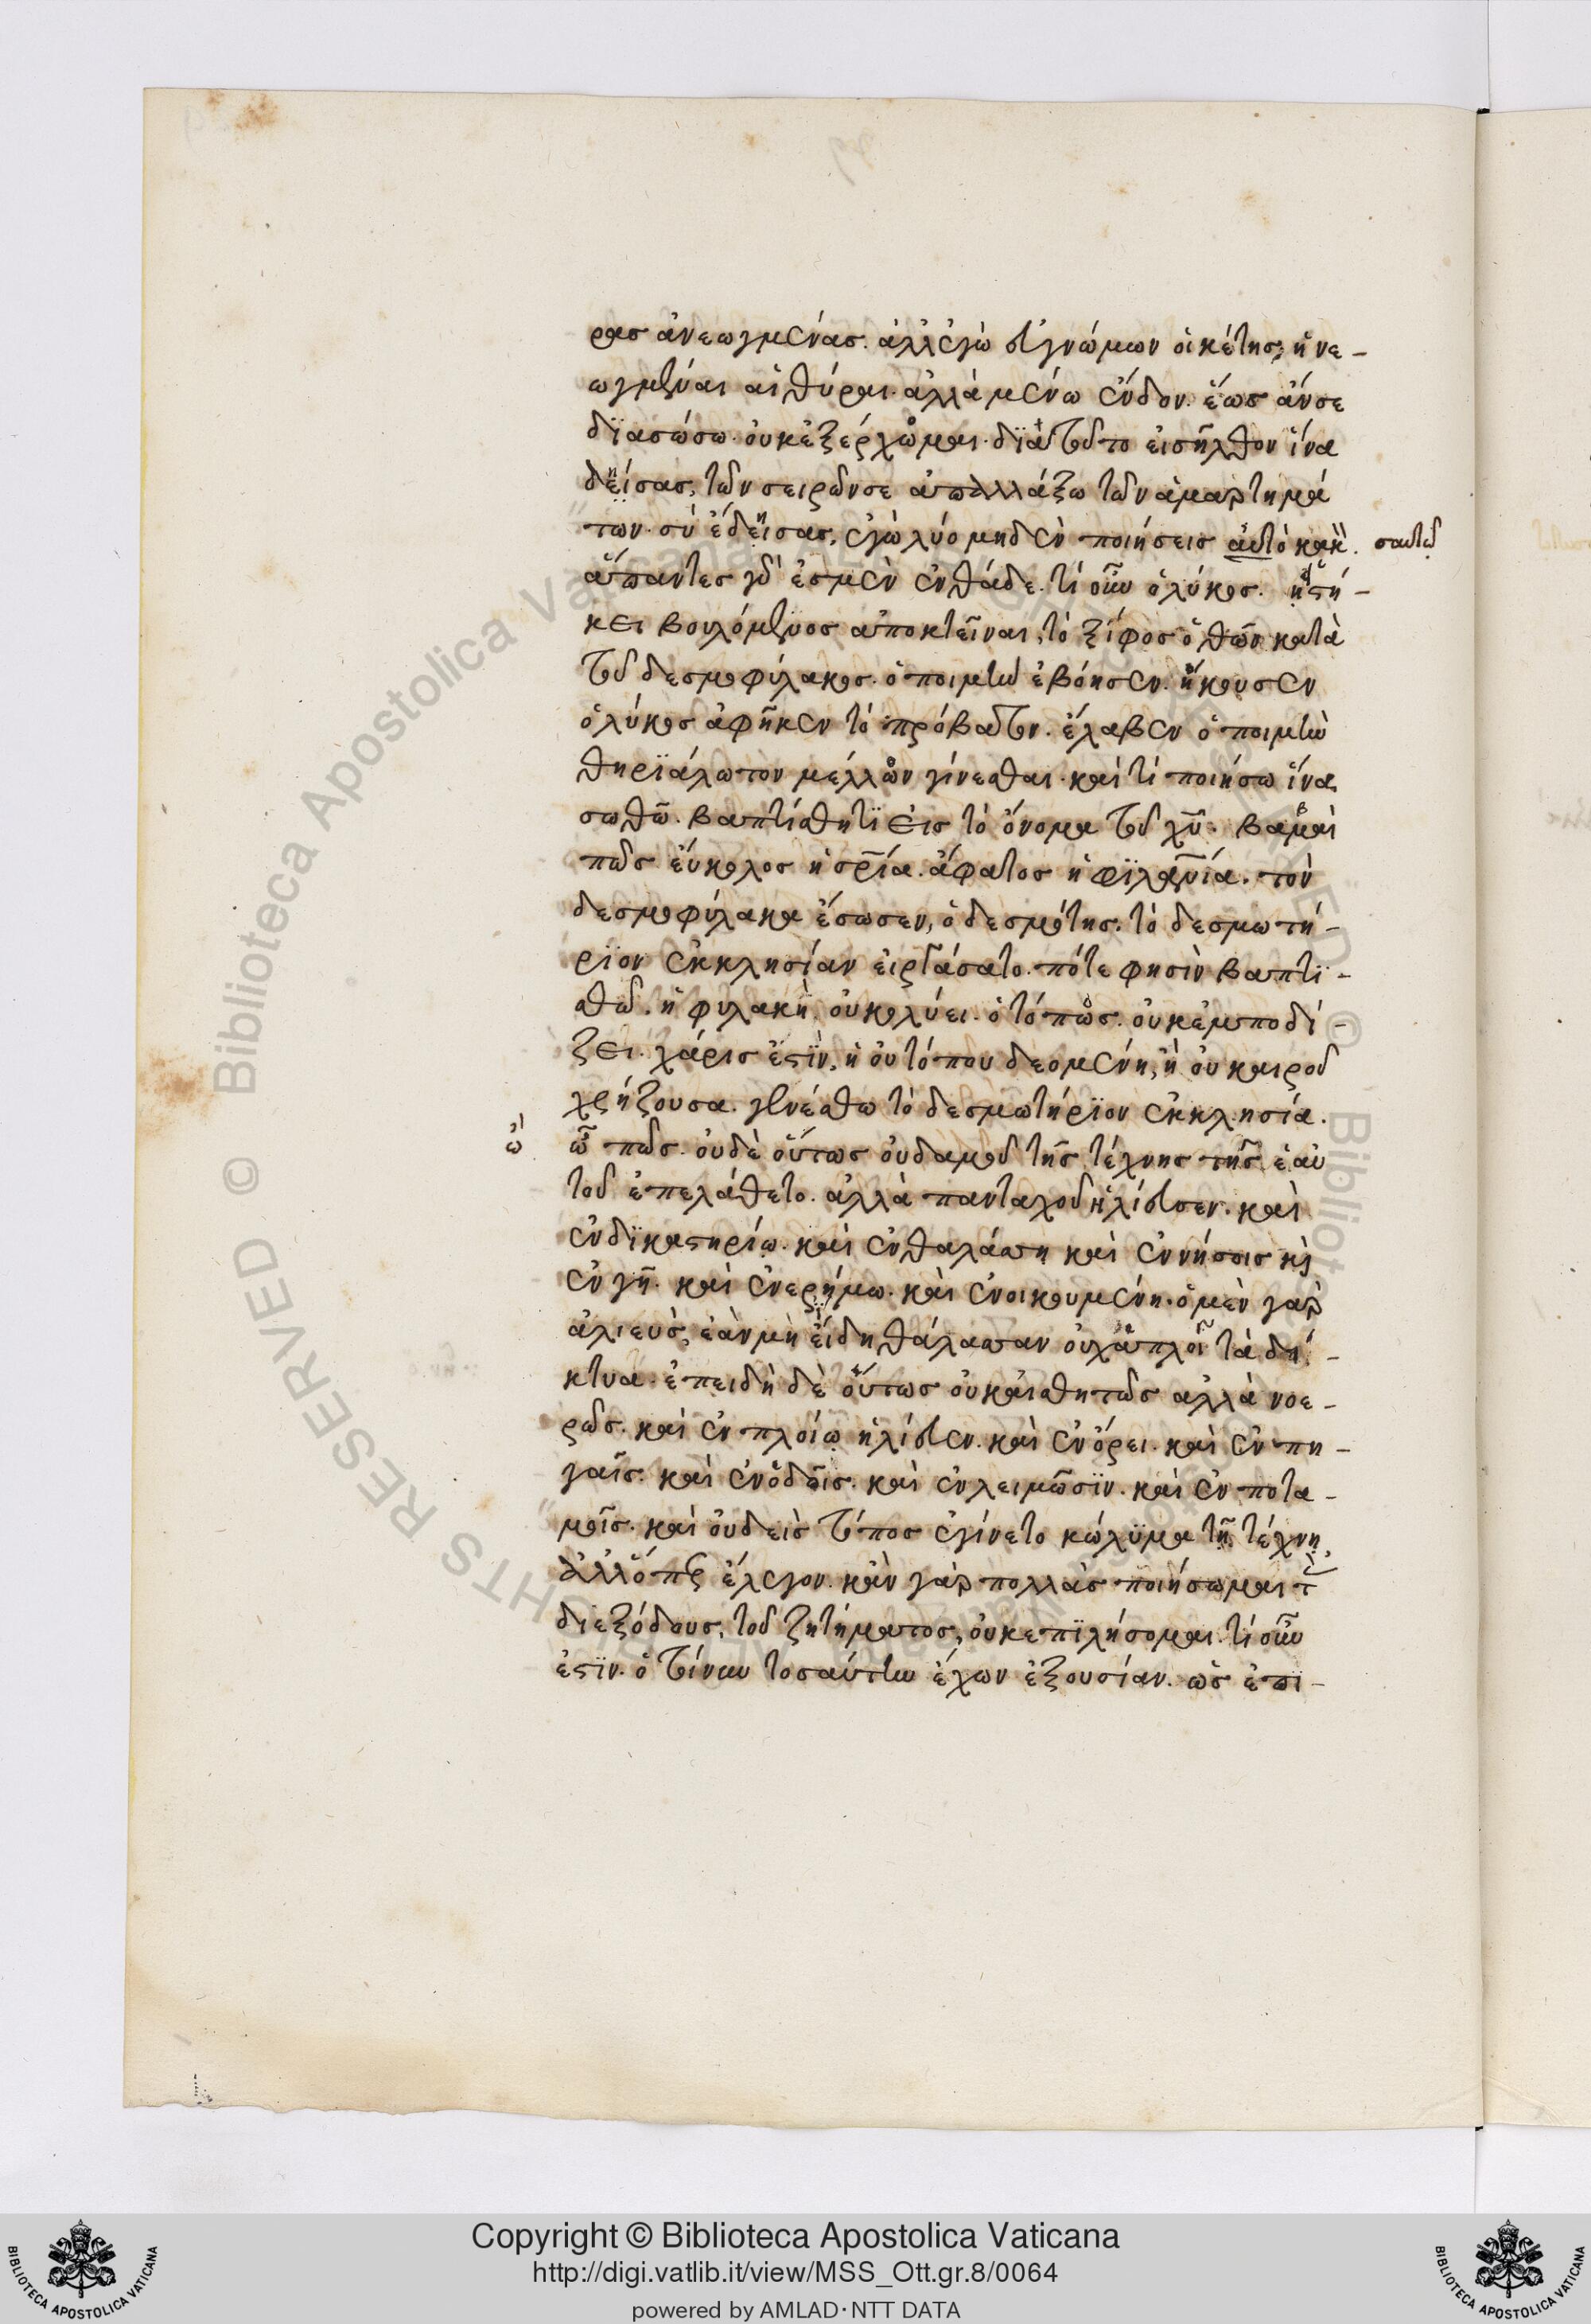 ρας ἀνεωγμένας. ἀλλ' ἐγὼ εὐγνώμων οἰκέτης, ἠνε-
ωγμέναι αἱ θύραι. ἀλλὰ μένω ἔνδον. ἕως ἄν σε
διασώσω. οὐκ ἐξέρχομαι. διὰ τοῦτο εἰσῆλθον ἵνα
δήσας, τῶν σειρῶν σε ἀπαλλάξω τῶν ἁμαρτημά
των. σὺ ἔδησας, ἐγὼ λύο μηδὲν ποιήσεις αὐτὸ κακὸν. σαυτῶ
ἅπαντες γάρ ἐσμὲν ἐνθάδε. τί οὖν ὁ λύκος. εἱστή-
κει βουλόμενος ἀποκτεῖναι, τὸ ξίφος ὀθῶν κατὰ
τοῦ δεσμοφύλακος. ὁ ποιμὴν ἐβόησεν. ἤκουσεν
ὁ λύκος ἀφῆκεν τὸ πρόβατον. ἔλαβεν ὁ ποιμὴν
θηριάλωτον μέλλον γίνεσθαι. καὶ τί ποιήσω ἵνα
σωθῶ. βαπτίσθητι εἰς τὸ ὄνομα τοῦ χυ. βαβαὶ
πῶς εὔκολος ἡ σρία. ἄφατος ἡ φιλανία. τὸν
δεσμοφύλακα ἔσωσεν, ὁ δεσμότης. τὸ δεσμωτή-
ριον ἐκκλησίαν εἰργάσατο. πότε φησὶν βαπτι-
σθῶ. ἡ φυλακὴ, οὐ κολύει. ὁ τόπος. οὐκ ἐμποδί-
ζει. χάρις ἐστὶν, ἡ οὐ τόπου δεομένη, ἢ οὐ καιροῦ
χρήζουσα. γενέσθω τὸ δεσμωτήριον ἐκκλησία.
ὢ
ὦ πῶς. οὐδὲ οὕτως οὐδαμοῦ τῆς τέχνης τῆς ἑαυ
τοῦ ἐπελάθετο. ἀλλὰ πανταχοῦ ἡλίευσεν. καὶ
ἐν δικαστηρίω. καὶ ἐν θαλάσση καὶ ἐν νήσοις καὶ
ἐν γῆ. καὶ ἐν ερήμω. καὶ ἐν οικουμένη. ὁ μὲν γὰρ
ἁλιεὺς, ἐὰν μὴ εἴδη θάλασσαν οὐχ ἁπλοῖ τὰ δί-
κτυα. ἐπειδὴ δὲ οὕτως οὐκ αἰσθητῶς ἀλλὰ νοε-
ρῶς. καὶ ἐν πλοίω ἡλίευεν. καὶ ἐν ὄρει. καὶ ἐν πη-
γαῖς. καὶ ἐν ὁδοῖς. καὶ ἐν λειμῶσιν. καὶ ἐν ποτα-
μοῖς. καὶ οὐδεὶς τόπος ἐγίνετο κώλυμα τῆ τέχνη,
ἀλλ' ὅπερ ἔλεγον. κἂν γὰρ πολλὰς ποιήσωμαι τὰς
διεξόδους, τοῦ ζητήματος, οὐκ επιλήσομαι. τί οὖν
ἐστιν. ὁ τίνων τοσαύτην ἔχων ἐξουσίαν. ὡς ἐπι-
Copyright © Biblioteca Apostolica Vaticana
http://digi.vatlib.it/view/MSS_Ott.gr.8/0064
powered by AMLAD·NTT DATA